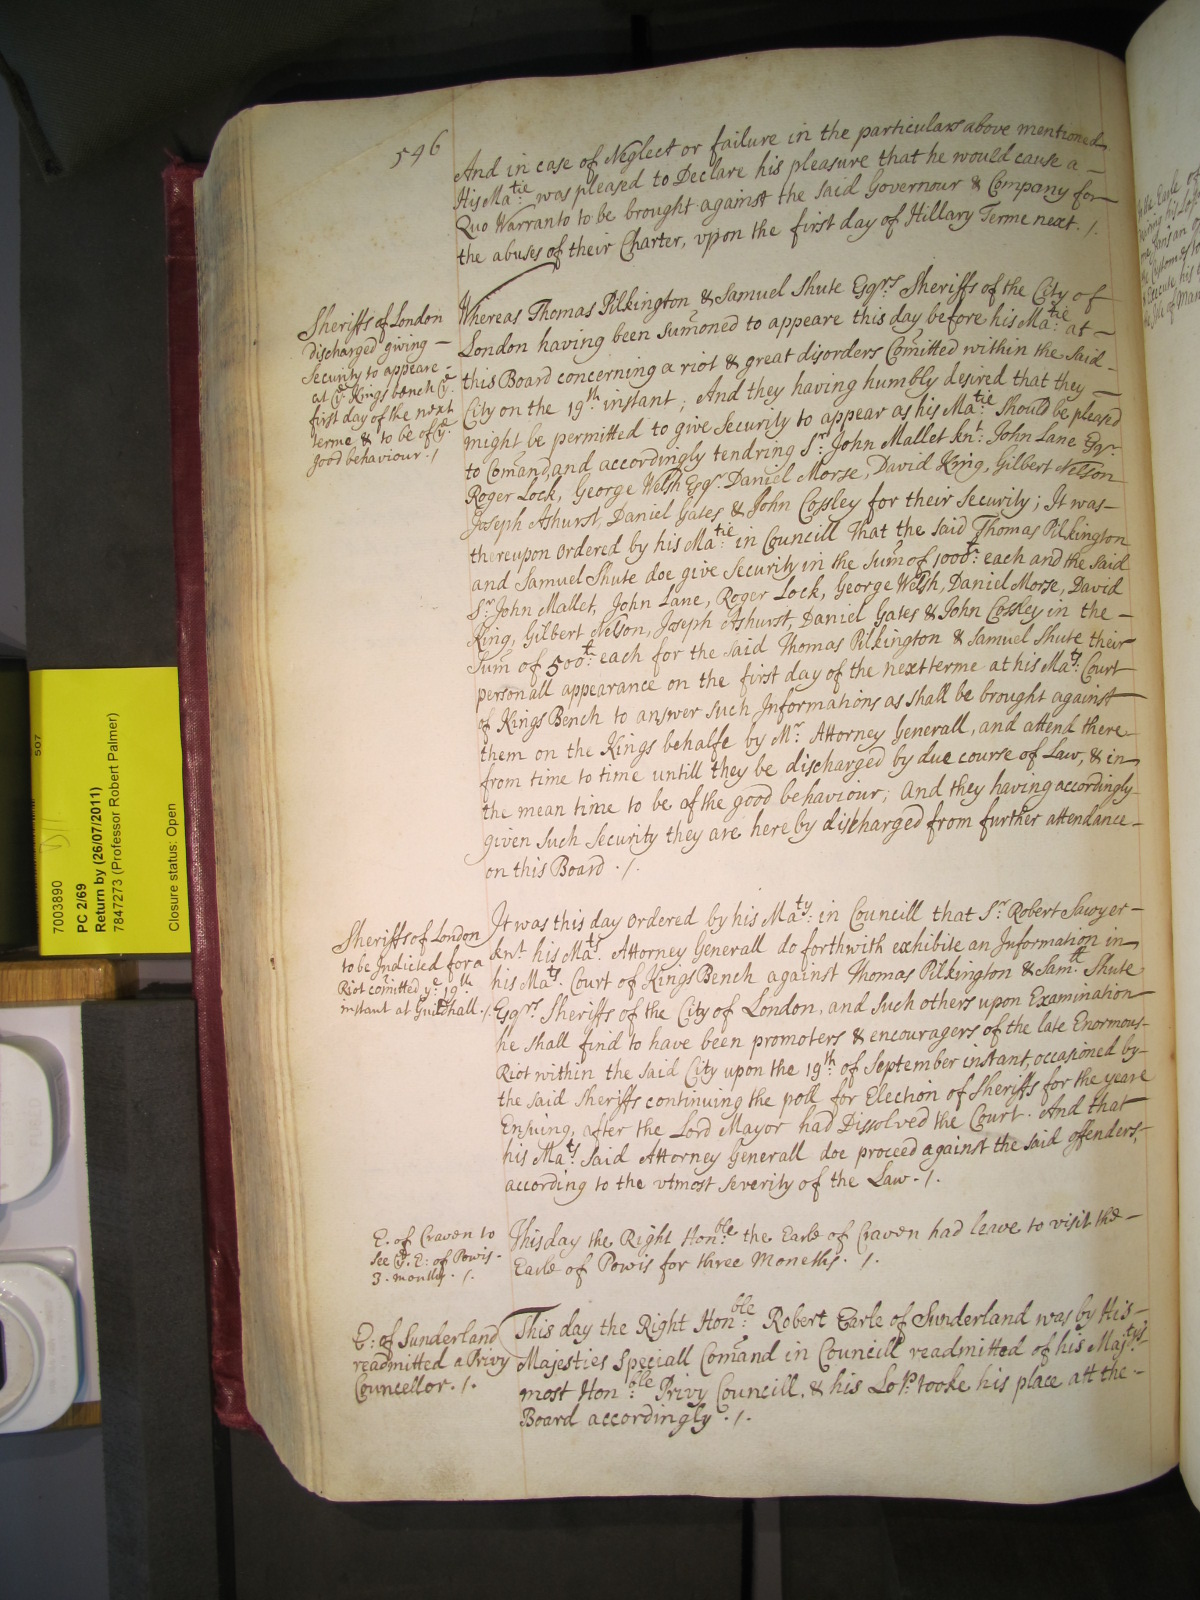 546
And in case of Neglect or failure in the particulars above mentioned
His Ma:tie was pleased to Declare his pleasure that he would cause a —
Quo Warranto to be brought against the said Governour & Company for
the abuses of their Charter, vpon the first day of Hillary Terme next ./.
Sheriffs of London
discharged giving —
Security to appeare -
at ye Kings bench ye
first day of the next
terme & to be of ye
good behaviour ./
Whereas Thomas Pilkington & Samuel Shute Esqrs Sheriffs of the City of
London having been sumoned to appeare this day before his Ma:tie at —
this Board concerning a riot & great disorders Comitted within the said -
City on the 19th instant; And they having humbly desired that they —
might be permitted to give Security to appear as his Ma:tie Should be pleased
to Comand, and accordingly tendring Sr John Mallet knt John Lane Esqr
Roger Lock, George Welsh Esqr Daniel Morse, David King, Gilbert Nelson
Joseph Ashurst, Daniel Gates & John Cossley for their Security; It was —
thereupon Ordered by his Ma:tie in Councill That the said Thomas Pilkington
and Samuel Shute doe give Security in the Sum of 1000t: each and the said
Sr John Mallet, John Lane, Roger Lock, George Welsh, Daniel Morse, David
King, Gilbert Nelson, Joseph Ashurst, Daniel Gates & John Cossley in the —
Sum of 500t: each for the said Thomas Pilkington & Samuel Shute their
personall appearance on the first day of the next terme at his Mats: Court
of Kings Bench to answer such Informations as shall be brought against
them on the Kings behalfe by Mr Attorney Generall, and attend there
from time to time untill they be discharged by due course of Law, & in
the mean time to be of the good behaviour; And they having accordingly
given such Security they are hereby discharged from further attendance -
on this Board ./.
Sheriffs of London
to be Indicted for a
Riot comitted ye 19th
instant at Guildhall ./.
It was this day Ordered by his Maty: in Councill that Sr Robert Sawyer —
knt his Mats Attorney Generall do forthwith exhibite an Information in
his Mats Court of Kings Bench against Thomas Pilkington & Sam:ll Shute
Esqrs Sheriffs of the City of London, and such others upon Examination
he shall find to have been promoters & encouragers of the late Enormous
Riot within the said City upon the 19th of September instant, occasioned by
the said Sheriffs continuing the poll for Election of Sheriffs for the yeare
Ensuing, after the Lord Mayor had Dissolved the Court. And that
his Mats said Attorney Generall doe proceed against the said offenders,
according to the vtmost severity of the Law ./.
E. of Craven to
see ye E: of Powis -
3. months ./.
This day the Right Hon:ble the Earle of Craven had leave to visit the —
Earle of Powis for three Moneths ./.
E: of Sunderland
readmitted a Privy
Councellor ./.
This day the Right Hon:ble Robert Earle of Sunderland was by His —
Majesties Speciall Comand in Councill readmitted of his Majtys
most Hon:ble Privy Councill, & his Lop tooke his place att the —
Board accordingly ./.
507
7003890
PC 2/69
Return by (26/07/2011)
7847273 (Professor Robert Palmer)
Closure status: Open